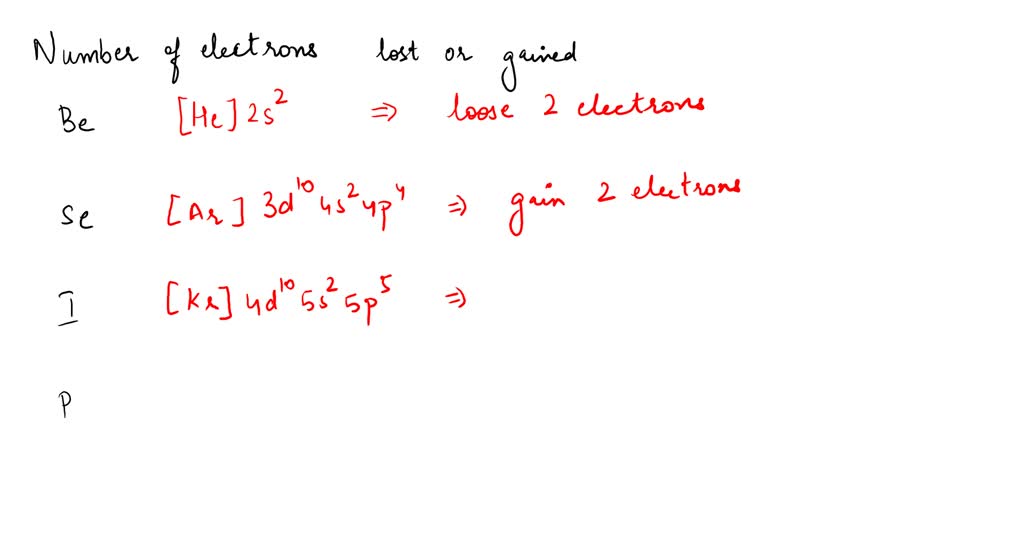 Number of electrons lost or gained
Be [He] 2s² ⇒ loose 2 electrons
Se [Ar] 3d¹⁰ 4s² 4p⁴ ⇒ gain 2 electrons
I [Kr] 4d¹⁰ 5s² 5p⁵ ⇒
P